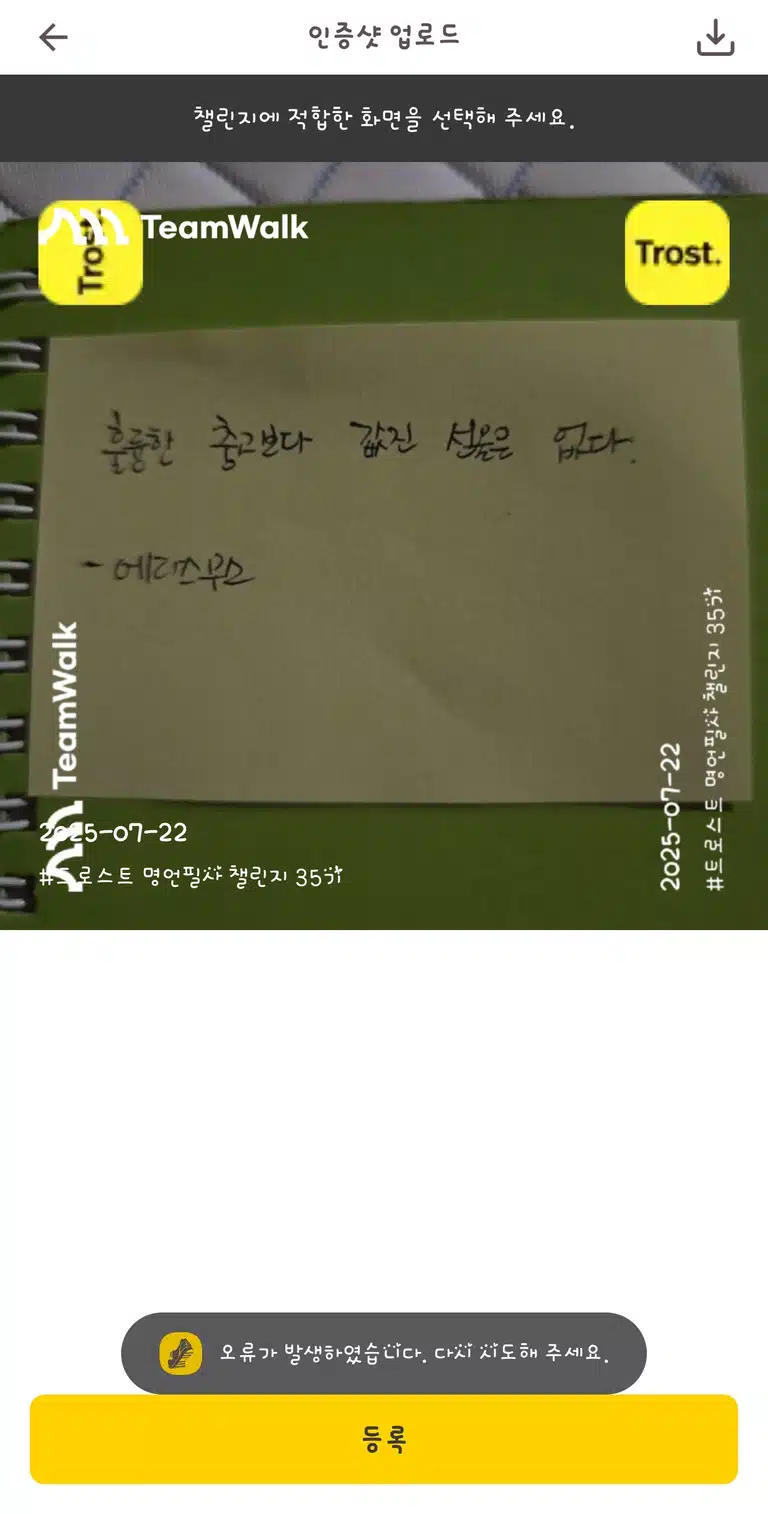 인증샷 업로드
챌린지에 적합한 화면을 선택해 주세요.
Trost.
TeamWalk
Trost.
훌륭한 충고보다 값진 선물은 없다.
- 에라스무스
TeamWalk
2025-07-22
#트로스트 명언필사 챌린지 35기
2025-07-22
#트로스트 명언필사 챌린지 35기
오류가 발생하였습니다. 다시 시도해 주세요.
등록